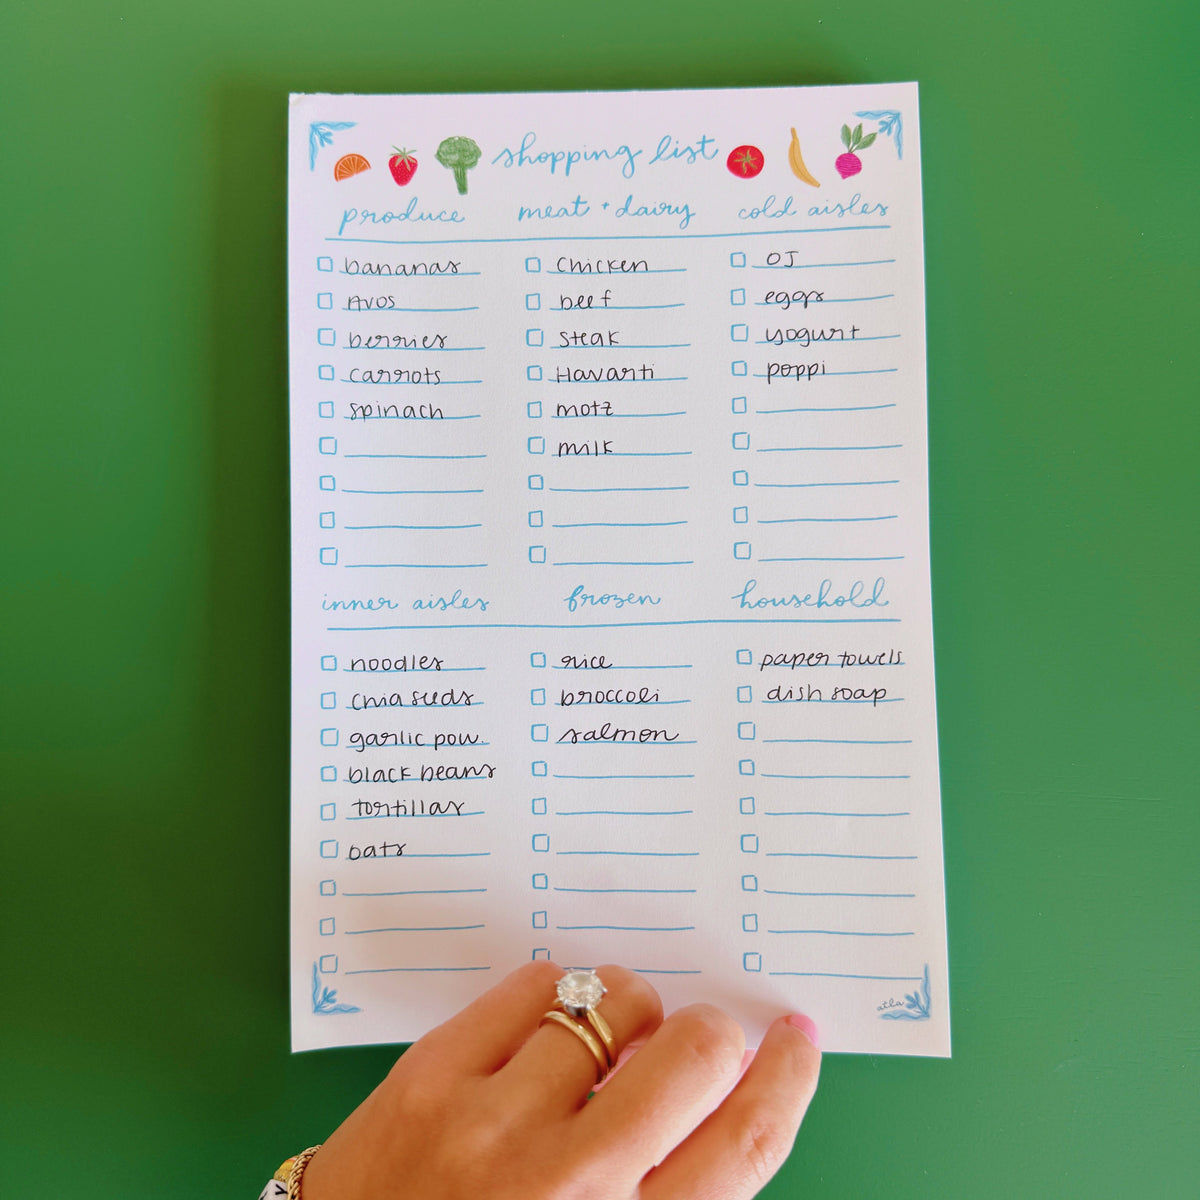 shopping list
produce
bananas
Avos
berries
carrots
spinach
meat + dairy
chicken
beef
steak
Havarti
motz
milk
cold aisles
OJ
eggs
yogurt
poppi
inner aisles
noodles
chia seeds
garlic pow.
black beans
tortillas
oats
frozen
rice
broccoli
salmon
household
paper towels
dish soap
atla